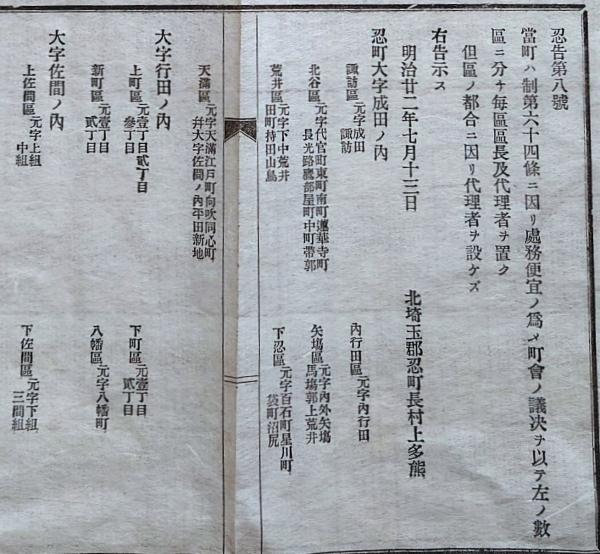 忍告第八號
當町ハ制第六十四條ニ因リ處務便宜ノ爲メ町會ノ議決ヲ以テ左ノ數
區ニ分チ每區區長及代理者ヲ置ク
但區ノ都合ニ因リ代理者ヲ設ケズ
右告示ス
明治廿二年七月十三日
北埼玉郡忍町長村上多熊
忍町大字成田ノ內
諏訪區元字成田
諏訪
內行田區元字內行田
北谷區元字代官町東町南町蓮華寺町
長光路鷹部屋町中町帶郭
矢塲區元字內外矢塲
馬塲郭上荒井
荒井區元字下中荒井
田町持田山島
下忍區元字百石町星川町
袋町沼尻
天滿區元字天滿江戶町向吹同心町
幷大字佐間ノ內平田新地
大字行田ノ內
上町區元壹丁目貳丁目
參丁目
下町區元壹丁目
貳丁目
新町區元壹丁目
貳丁目
八幡區元字八幡町
大字佐間ノ內
上佐間區元字上組
中組
下佐間區元字下組
三間組